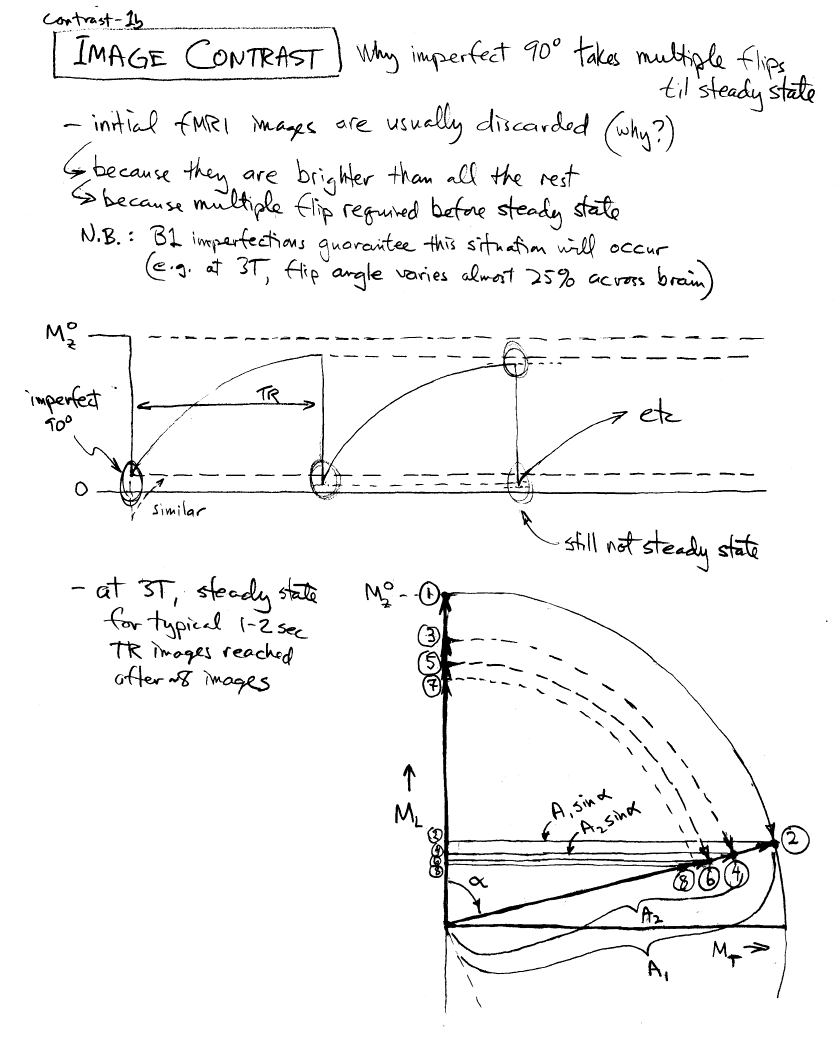 Contrast-1b
IMAGE CONTRAST
Why imperfect 90° takes multiple flips
til steady state
- initial fMRI images are usually discarded (why?)
↳ because they are brighter than all the rest
↳ because multiple flip required before steady state
N.B.: B1 imperfections guarantee this situation will occur
(e.g. at 3T, flip angle varies almost 25% across brain)
M°z
imperfect
90°
TR
etc
0
similar
still not steady state
- at 3T, steady state
for typical 1-2 sec
TR images reached
after ~8 images
M°z
1
3
5
7
↑
M_L
A₁ sin α
A₂ sin α
2
4
6
8
2
8
6
4
α
A₂
M_T →
A₁